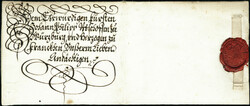 Dem Ehrwürdigen Fürsten
Johann Philips Bischoffen zu
Würtzburg und Hertzogen zu
Francken Unserm Lieben
Andächtigen